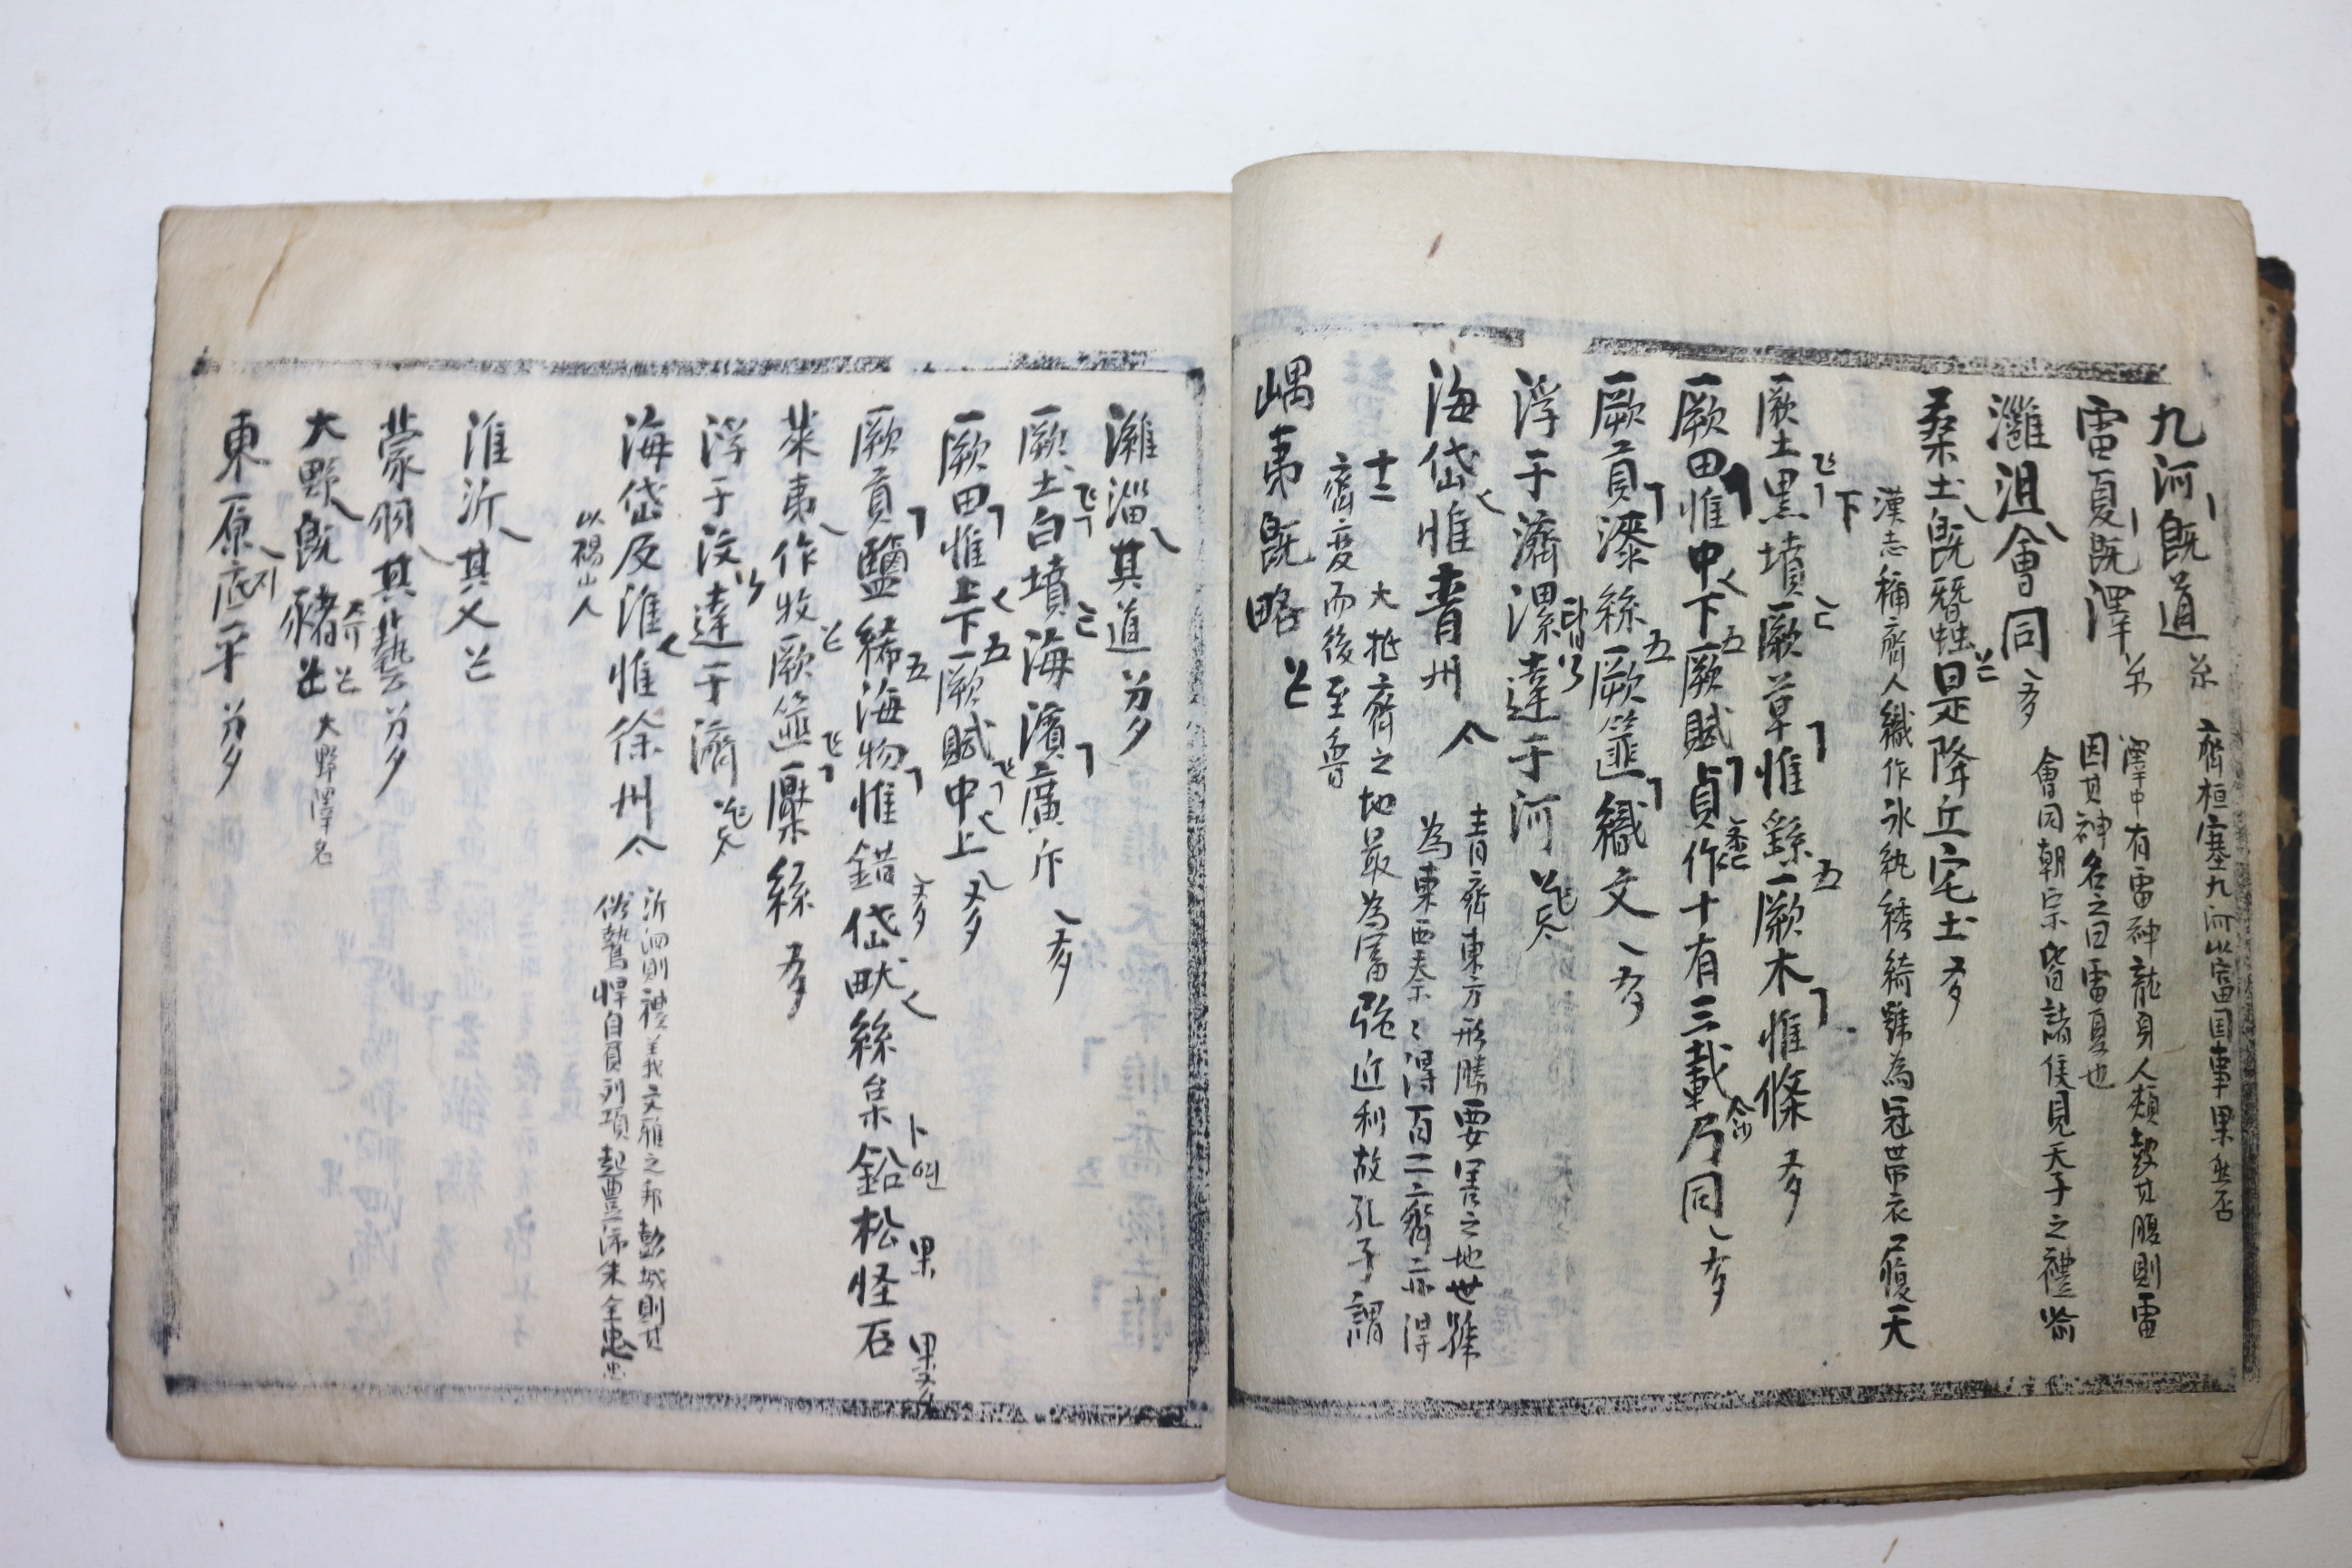 九河既道
齊桓塞九河以富国事果然否
雷夏既澤
澤中有雷神龍身人頰鼓其腹則雷
因其神名之曰雷夏也
灉沮會同
會同朝宗皆諸侯見天子之禮喩
桑土既蚕是降丘宅土
漢志稱齊人織作氷紈綉綺號為冠帶衣履天
下
厥土黒墳厥草惟繇厥木惟條
厥田惟中下厥賦貞作十有三載乃同
厥貢漆絲厥篚織文
浮于濟漯達于河
海岱惟青州
青齊東方形勝要害之地世号
為東西秦〻得百二齊亦得
十二
大抵齊之地最為富強近利故孔子謂
齊変而後至魯
嵎夷既略
濰淄其道
厥土白墳海濱廣斥
厥田惟上下厥賦中上
厥貢鹽絺海物惟錯岱畎絲枲鉛松怪石
萊夷作牧厥篚檿絲
浮于汶達于濟
海岱及淮惟徐州
沂泗則禮義文雅之邦彭城則其
俗鷙悍自負刘項起豊沛朱全忠
以碭山人
淮沂其乂
蒙羽其藝
大野既豬
大野澤名
東原底平